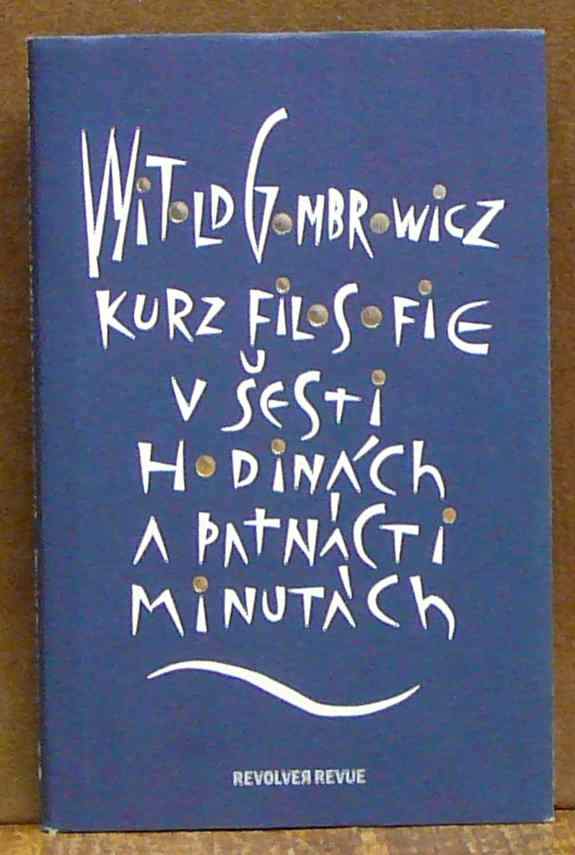 WiToLD GoMBRoWiCZ
KURZ FiLoSoFiE
V ŠESTi
HoDiNÁCh
A PATNÁCTi
MiNUTÁCh
REVOLVEЯ REVUE